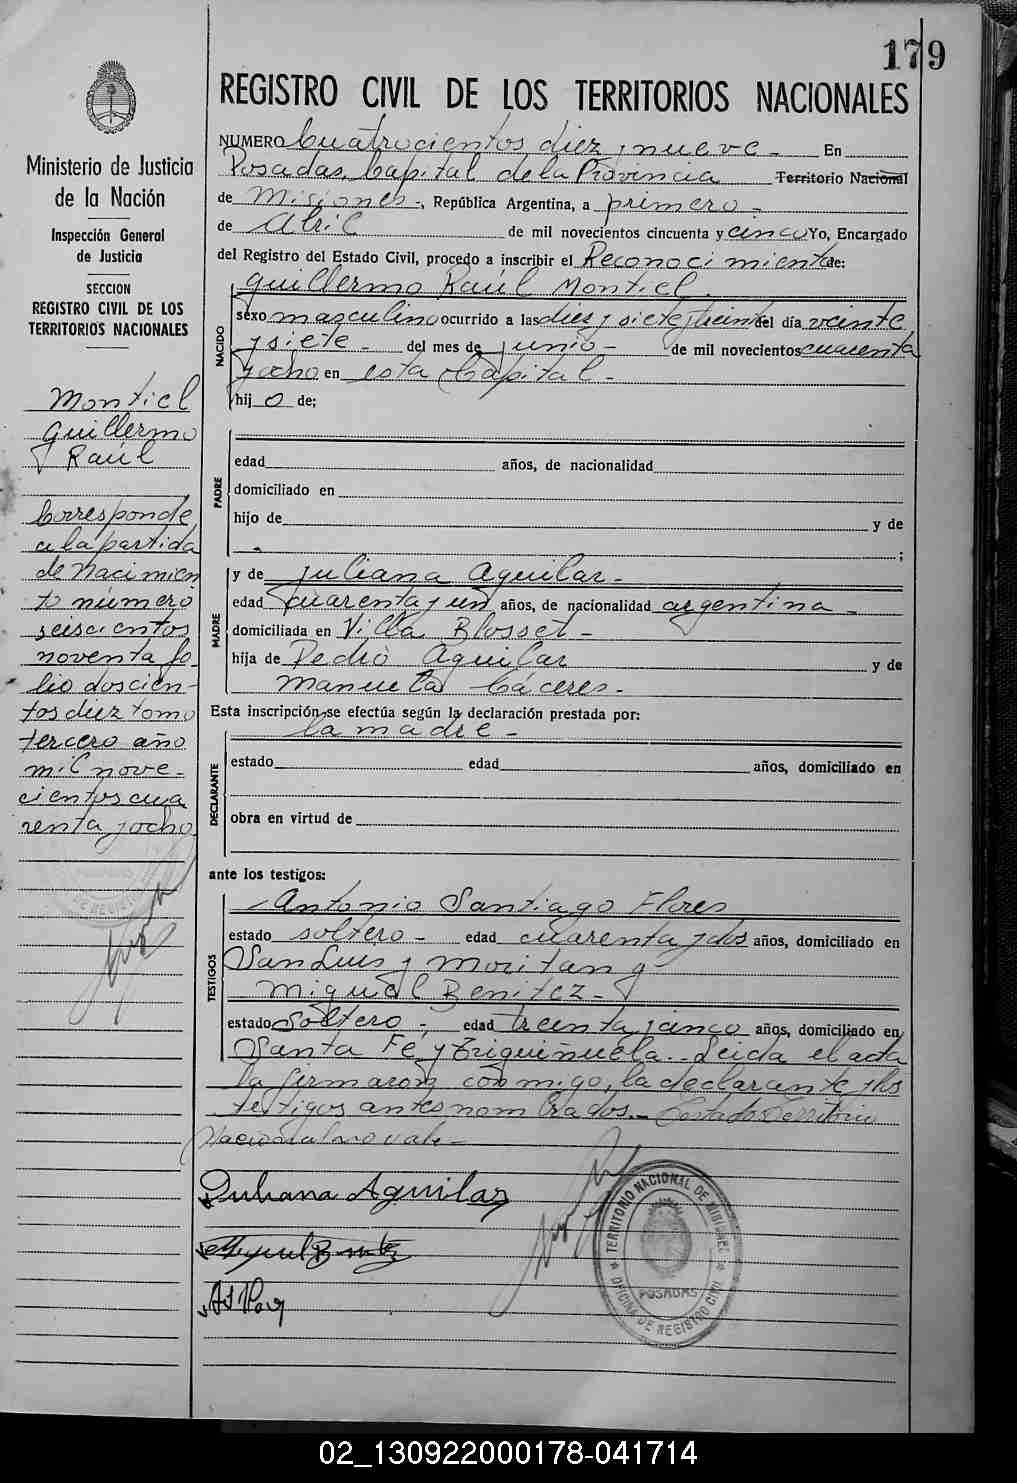 179
REGISTRO CIVIL DE LOS TERRITORIOS NACIONALES
Ministerio de Justicia
de la Nación
Inspección General
de Justicia
SECCION
REGISTRO CIVIL DE LOS
TERRITORIOS NACIONALES
Montiel
Guillermo
Raúl
Corresponde
a la partida
de Nacimien
to número
seiscientos
noventa fo
lio doscien-
tos diez tomo
tercero año
mil nove-
cientos cua
renta y ocho
NUMERO Cuatrocientos diez y nueve - En
Posadas, Capital de la Provincia Territorio Nacional
de Misiones -, República Argentina, a primero -
de Abril de mil novecientos cincuenta y cinco Yo, Encargado
del Registro del Estado Civil, procedo a inscribir el Reconocimiento de:
Guillermo Raúl Montiel.
NACIDO
sexo masculino ocurrido a las diez y siete y treinta del día veinte
y siete - del mes de junio - de mil novecientos cuarenta
y ocho en esta Capital -
hij o de;
PADRE
edad años, de nacionalidad
domiciliado en
hijo de y de
;
MADRE
y de Juliana Aguilar -
edad cuarenta y un años, de nacionalidad argentina -
domiciliada en Villa Blosset -
hija de Pedro Aguilar y de
Manuela Cáceres -
Esta inscripción se efectúa según la declaración prestada por:
la madre -
DECLARANTE
estado edad años, domiciliado en
obra en virtud de
ante los testigos:
TESTIGOS
Antonio Santiago Flores
estado soltero - edad cuarenta y dos años, domiciliado en
San Luis y Moritan y
Miguel Benitez -
estado Soltero -, edad treinta y cinco años, domiciliado en
Santa Fé y Trigüiñuela.- Leida el acta
la firmaron conmigo, la declarante y los
testigos antes nombrados.- Testado: Territorio
Nacional no vale -
Juliana Aguilar
Miguel Benitez
TERRITORIO NACIONAL DE MISIONES
POSADAS
OFICINA DE REGISTRO CIVIL
02_130922000178-041714